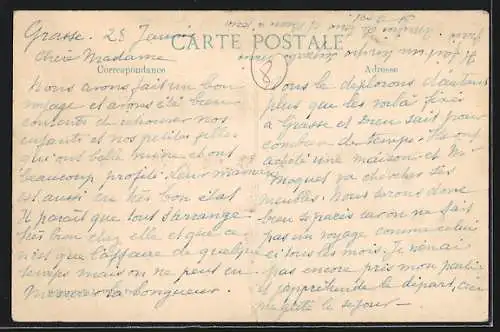 Grasse. 28 Janvier
CARTE POSTALE
Chère Madame
Correspondance
Adresse
Nous avons fait un bon
voyage et avons été bien
contents de retrouver nos
enfants et nos petites filles
qui ont belle mine et ont
beaucoup profité. Leur maman
est aussi en très bon état
Il paraît que tout s'arrange
très bien chez elle et que ce
n'est que l'affaire de quelque
temps mais on ne peut en
la longueur.
8
Nous le déplorons d'autant
plus que les voilà fixés
à Grasse et Dieu sait pour
combien de temps. Ils ont
acheté une maison et Mr
Moguet va chercher les
meubles. Nous serons donc
bien séparés car on ne fait
pas un voyage comme celui
ci tous les mois. Je n'ai
pas encore pris mon parti
et j'appréhende le départ, ceci
me gâte le séjour